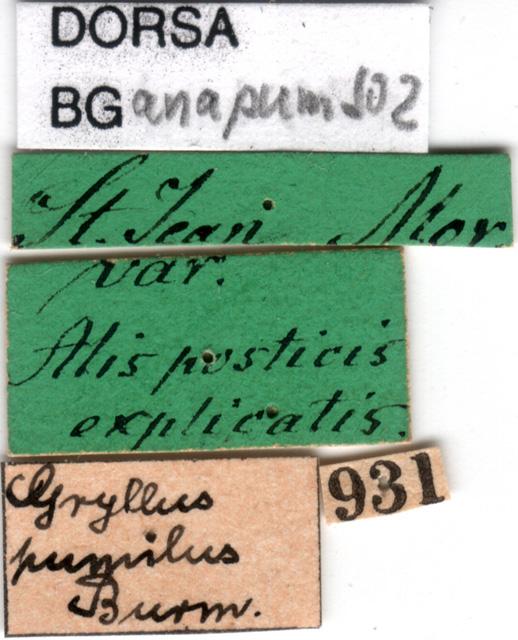 DORSA
BG anapum S02
St. Jean Mor.
var.
Alis posticis
explicatis.
Gryllus
pumilus
Burm.
931